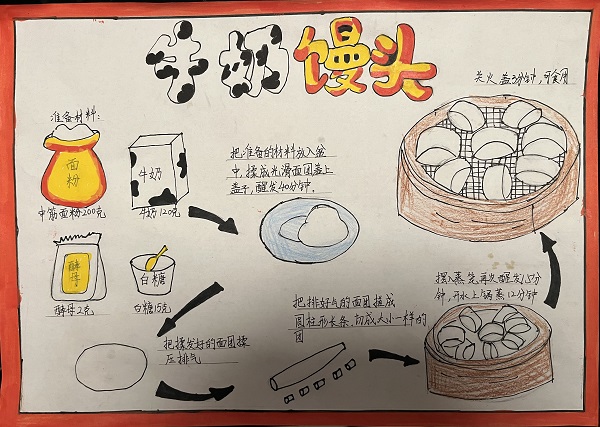 牛奶馒头
关火,盖3分钟,可食用
准备材料:
面
粉
中筋面粉200克
牛奶
牛奶120克
酵
母
酵母2克
白糖
白糖15克
把准备的材料放入盆
中,揉成光滑面团盖上
盖子,醒发40分钟
把揉发好的面团揉
压排气
把排好气的面团搓成
圆柱形长条,切成大小一样的
团
摆入蒸笼再次醒发15分
钟,开水上锅蒸12分钟